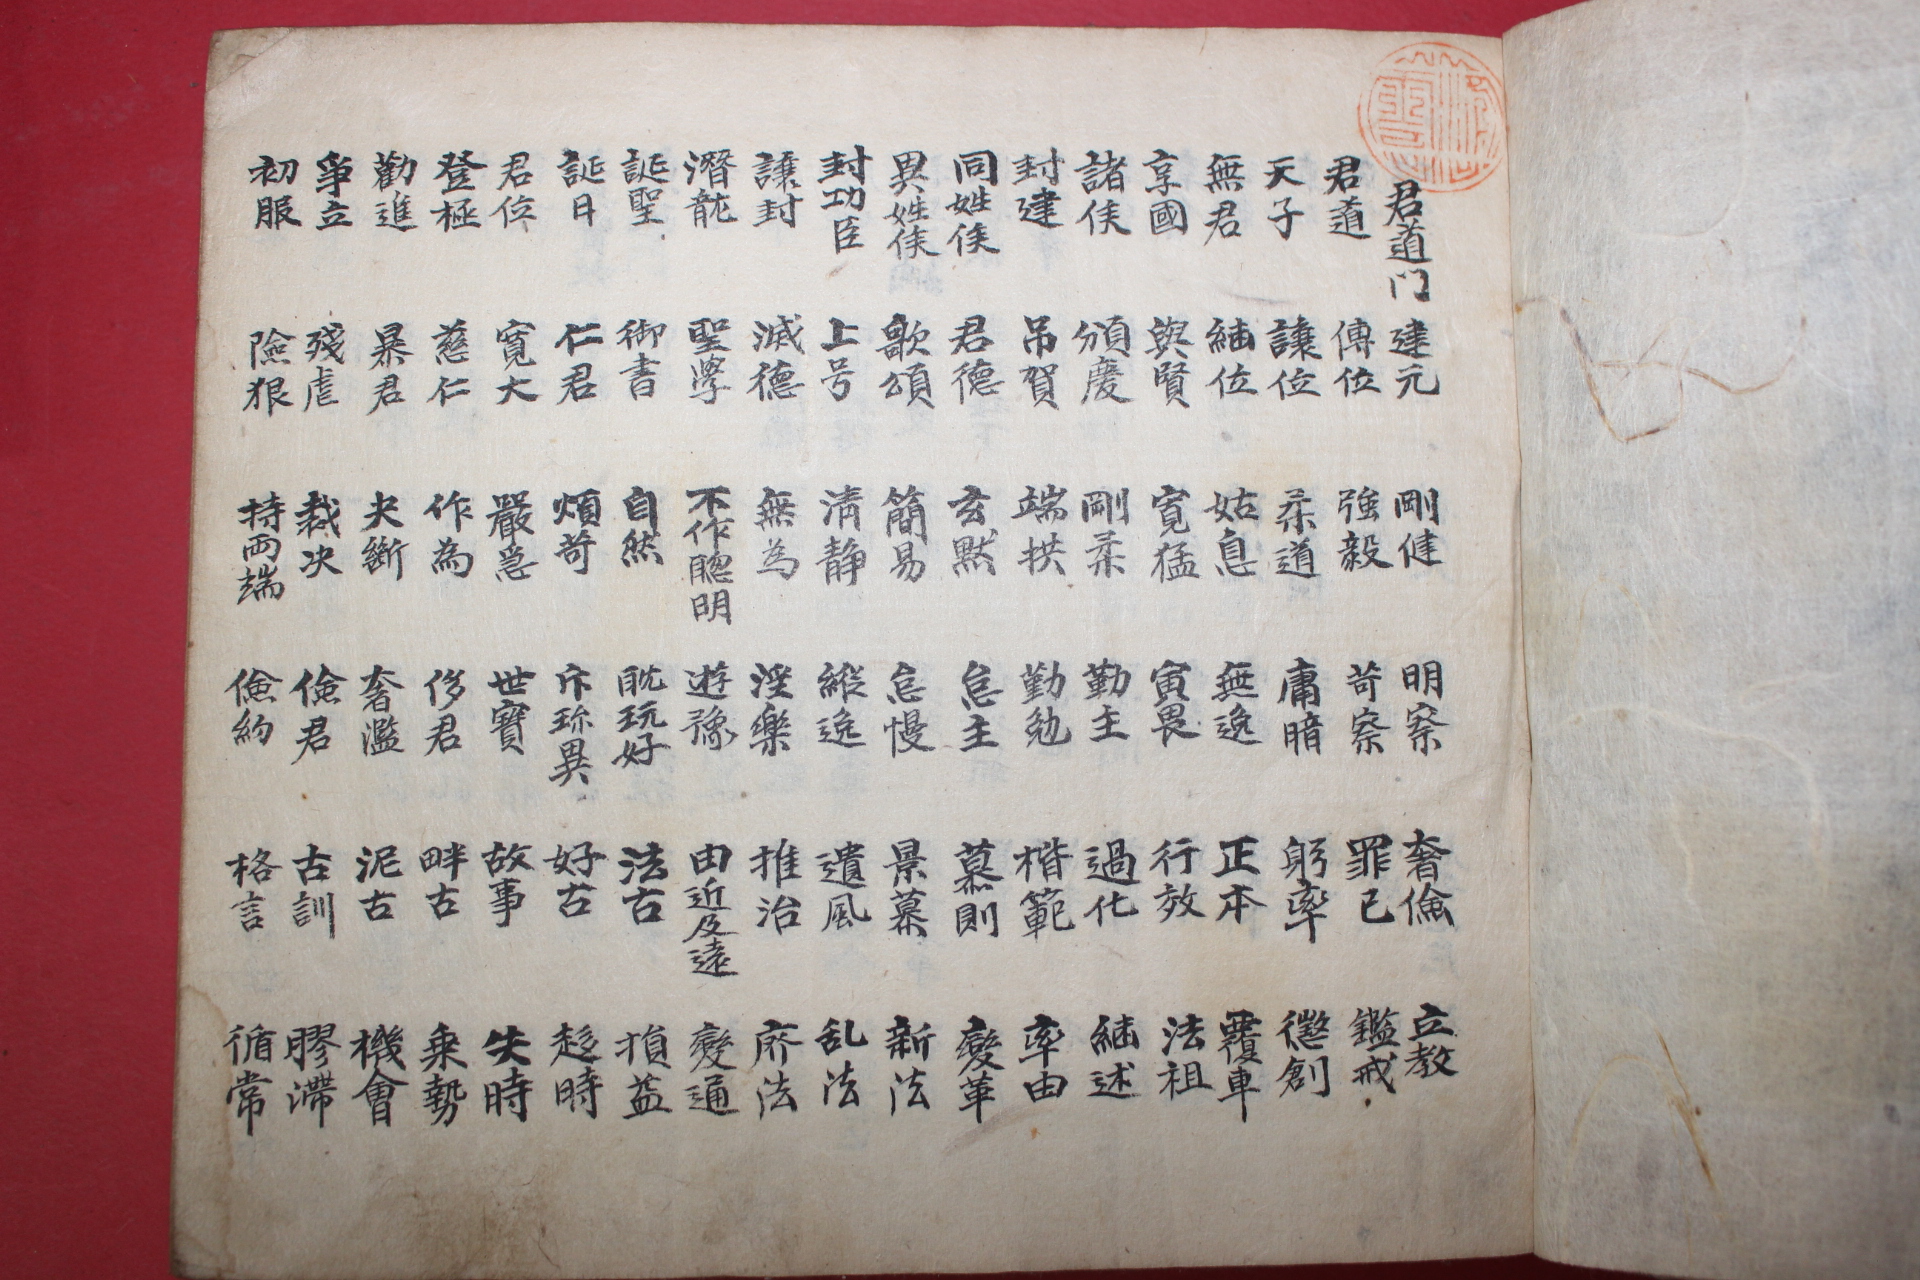 君道門 君道 天子 無君 享國 諸侯 封建 同姓侯 異姓侯 封功臣 讓封 潛龍 誕聖 誕日 君位 登極 勸進 爭立 初服
建元 傳位 讓位 継位 與賢 頒慶 吊賀 君德 歌頌 上号 減德 聖學 御書 仁君 寬大 慈仁 暴君 殘虐 險狠
剛健 強毅 柔道 姑息 寬猛 剛柔 端拱 玄默 簡易 淸静 無為 不作聰明 自然 煩苛 嚴急 作為 夬斷 裁决 持兩端
明察 苛察 庸暗 無逸 寅畏 勤主 勤勉 怠主 怠慢 縱逸 淫樂 遊豫 耽玩好 斥珎異 世寶 侈君 奢濫 儉君 儉約
奢儉 罪己 躬率 正本 行效 過化 楷範 慕則 景慕 遺風 推治 由近及遠 法古 好古 故事 畔古 泥古 古訓 格言
立教 鑑戒 懲創 覆車 法祖 継述 率由 變革 新法 乱法 斥法 變通 損益 趁時 失時 乗勢 機會 膠滯 循常